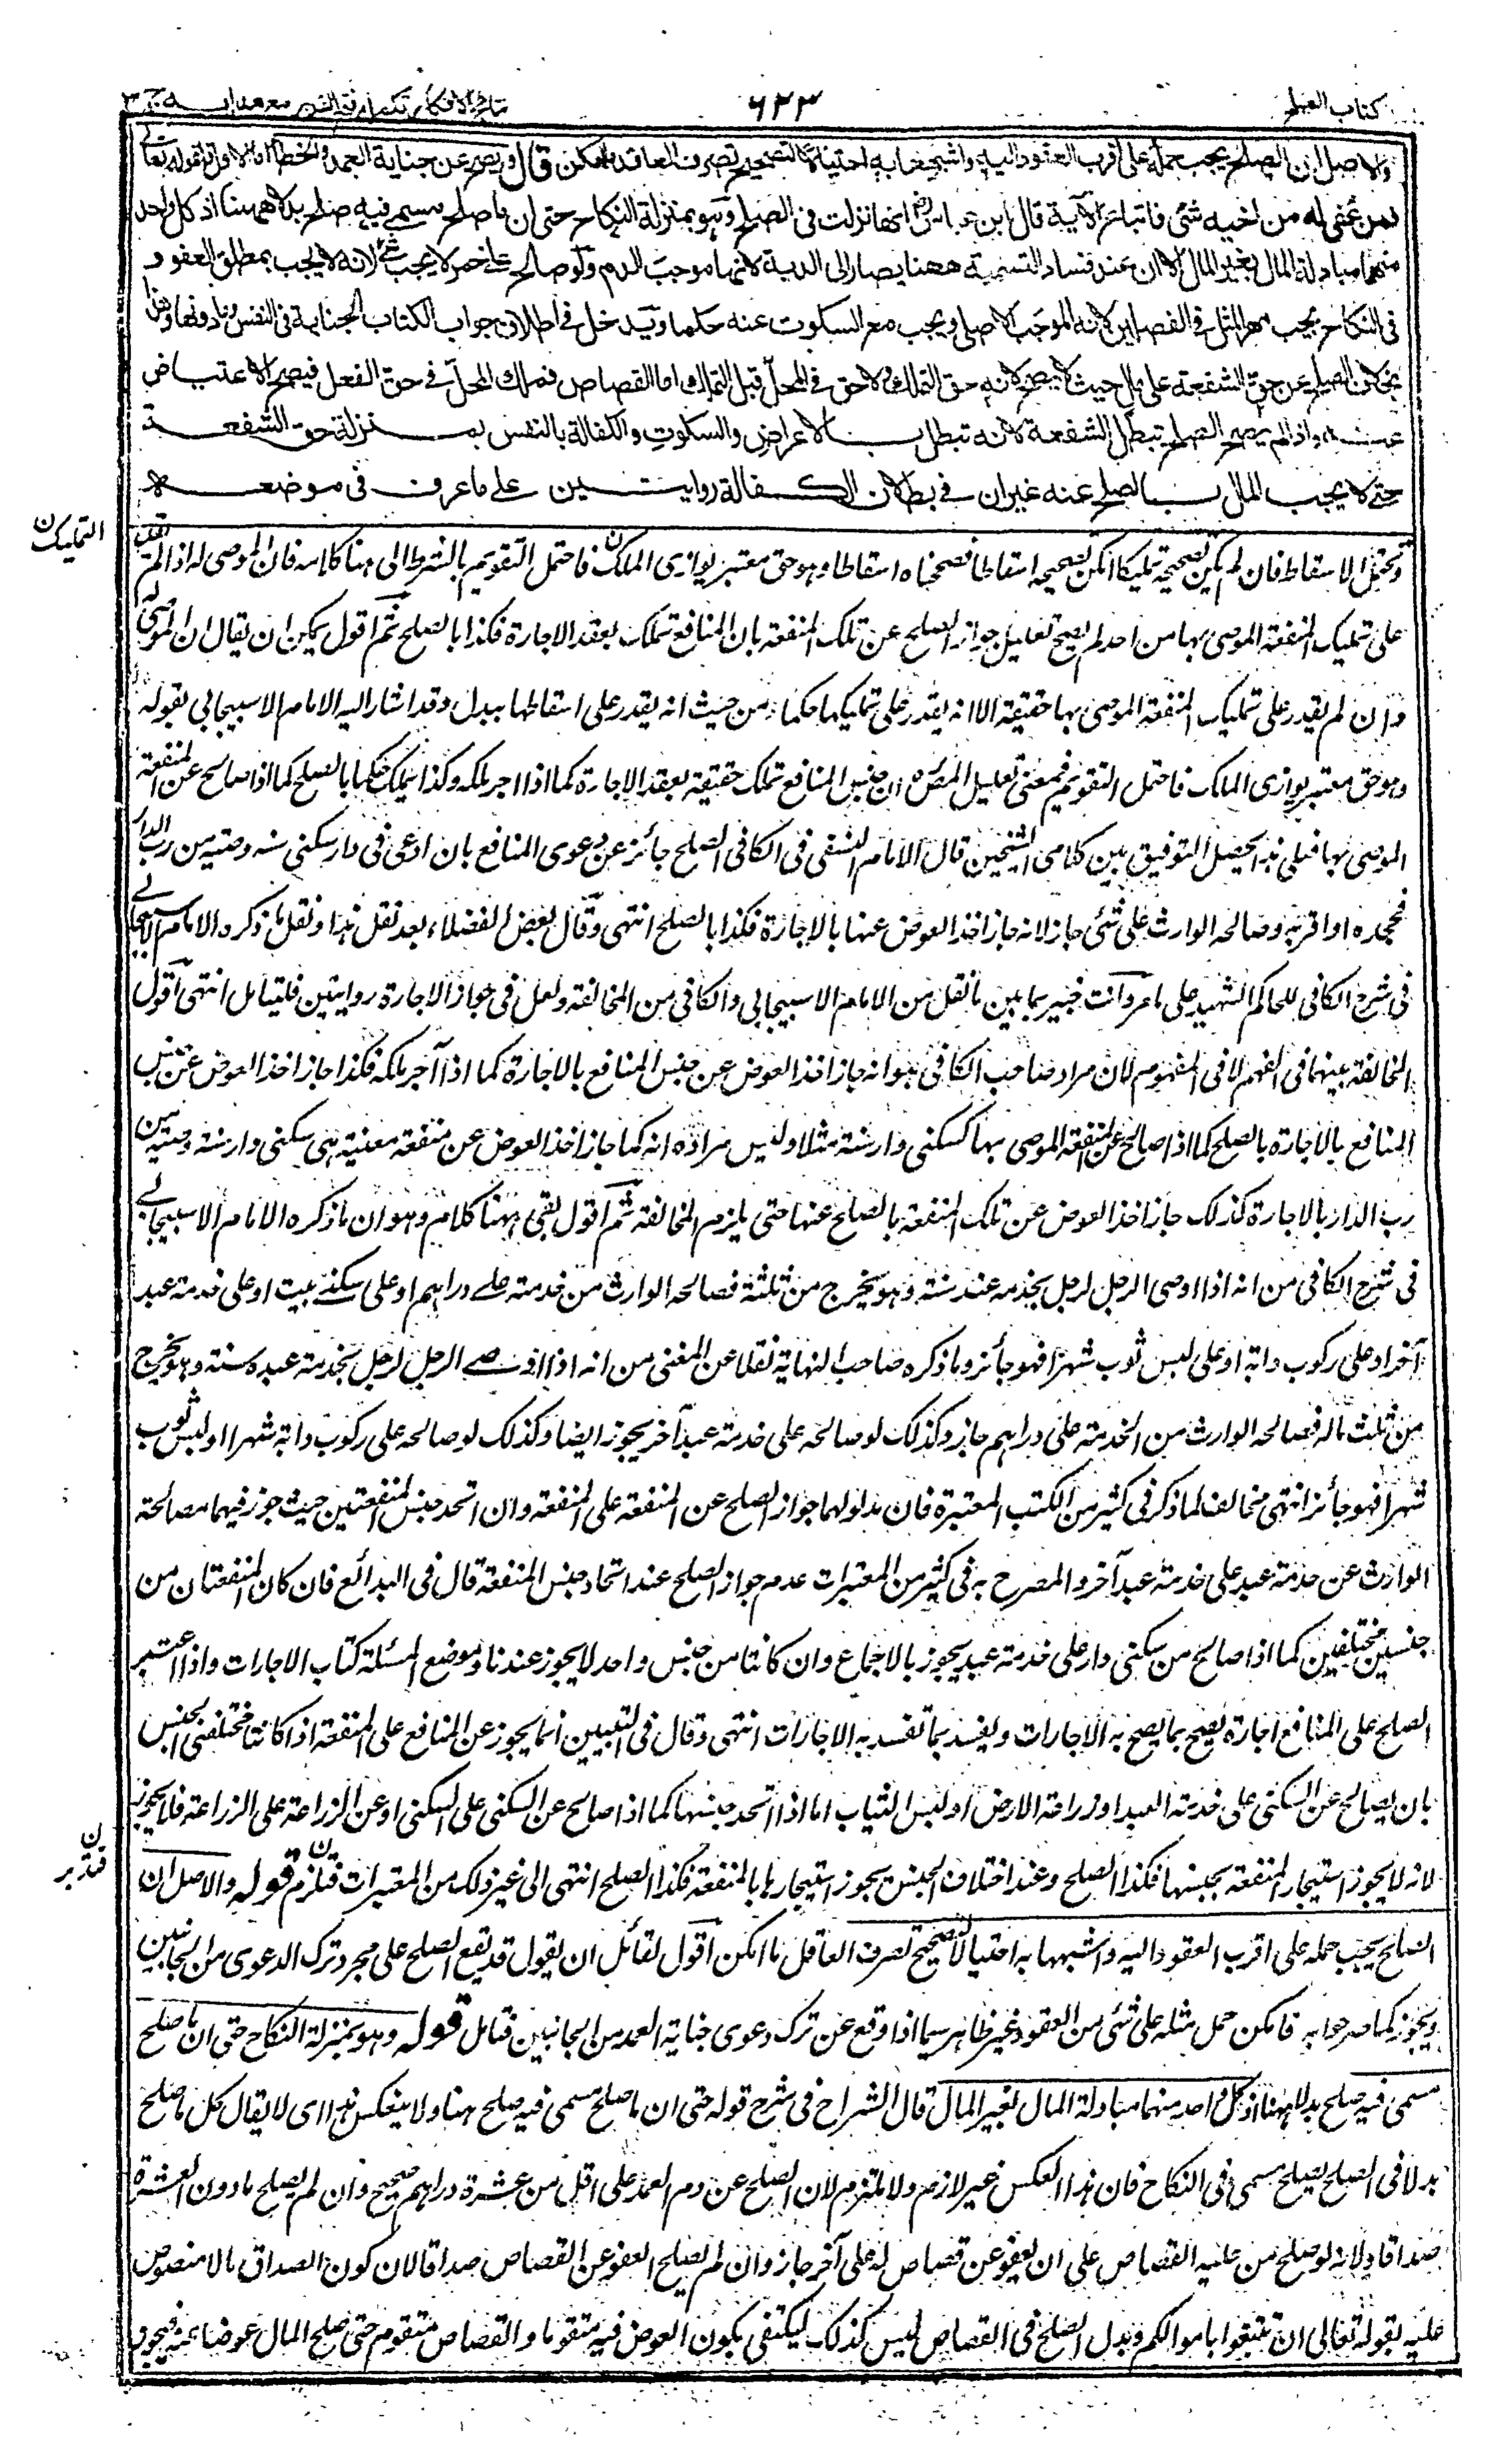 كتاب الصلح
٦٢٣
نتائج الافكار تكملہ فتح القدير مع هدايہ ج ٣
والاصل ان الصلح يجب حمله على اقرب العقود اليه واشبهها به احتيالا لتصحيح تصرف العاقد ما امكن قال ويصح عن جناية العمد والخطأ اما الاول فلقوله تعالى
فمن عفى له من اخيه شئ فاتباع الآية قال ابن عباس رض انها نزلت فى الصلح وهو بمنزلة النكاح حتى ان ما صلح مسمى فيه صلح بدلا ههنا اذ كل واحد
منهما مبادلة المال بغير المال الا ان عند فساد التسمية ههنا يصار الى الدية لانها موجب الدم ولو صالح على خمر لا يجب شئ لانه لا يجب بمطلق العفو و
فى النكاح يجب مهر المثل فى الفصلين لانه الموجب الاصلى ويجب مع السكوت عنه حكما ويدخل فى اطلاق جواب الكتاب الجناية فى النفس وما دونها وهذا
بخلاف الصلح عن حق الشفعة على مال حيث لا يصح لانه حق التملك ولا حق فى المحل قبل التملك اما القصاص فملك المحل فى حق الفعل فيصح الاعتياض
عنه واذا لم يصح الصلح تبطل الشفعة لانه تبطل بالاعراض والسكوت والكفالة بالنفس بمنزلة حق الشفعة
حتى لا يجب المال بالصلح عنه غير ان فى بطلان الكفالة روايتين على ما عرف فى موضعه
التمليك ن
وتحتمل الاسقاط فان لم يكن تصحيحه تمليكا امكن تصحيحه اسقاطا فصححناه اسقاطا وهو حق معتبر يوازى الملك فاحتمل التقويم بالشرط الى هنا كلامه فان الموصى له اذا لم يقدر
على تمليك المنفعة الموصى بها من احد لم يصح تعليل جواز الصلح عن تلك المنفعة بان المنافع تملك بعقد الاجارة فكذا بالصلح ثم اقول يمكن ان يقال ان الموصى له
وان لم يقدر على تمليك المنفعة الموصى بها حقيقة الا انه يقدر على تمليكها حكما من حيث انه يقدر على اسقاطها ببدل وقد اشار اليه الامام الاسبيجابي بقوله
وهو حق معتبر يوازى الملك فاحتمل التقويم فمعنى تعليل المصره ان جنس المنافع تملك حقيقة بعقد الاجارة كما اذا اجر ملكه وكذا يملك حكما بالصلح كما اذا صالح عن المنفعة
الموصى بها فعلى هذا يحصل التوفيق بين كلامى الشيخين قال الامام النسفى فى الكافى الصلح جائز عن دعوى المنافع بان ادعى فى دار سكنى سنة وصية من رب الدار
فجحده او اقر به وصالحه الوارث على شئ جاز لانه جاز اخذ العوض عنها بالاجارة فكذا بالصلح انتهى وقال بعض الفضلاء بعد نقل هذا ونقل ما ذكره الامام الاسبيجابي
فى شرح الكافى للحاكم الشهيد على ما مر وانت خبير بما بين ما نقل من الامام الاسبيجابي والكافى من المخالفة ولعل فى جواز الاجارة روايتين فليتامل انتهى اقول
المخالفة بينهما فى الفهم لا فى المفهوم لان مراد صاحب الكافى هو انه جاز اخذ العوض عن جنس المنافع بالاجارة كما اذا آجر ملكه فكذا جاز اخذ العوض عن جنس
المنافع بالاجارة بالصلح كما اذا صالح عن المنفعة الموصى بها كسكنى دار سنة مثلا وليس مراده انه كما جاز اخذ العوض عن منفعة معينة هى سكنى دار سنة وصية من
رب الدار بالاجارة كذلك جاز اخذ العوض عن تلك المنفعة بالصلح عنها حتى يلزم المخالفة ثم اقول بقى ههنا كلام وهو ان ما ذكره الامام الاسبيجابي
فى شرح الكافى من انه اذا اوصى الرجل لرجل بخدمة عبده سنة وهو يخرج من ثلثه فصالحه الوارث من خدمته على دراهم او على سكنى بيت او على خدمة عبد
آخر او على ركوب دابة او على لبس ثوب شهرا فهو جائز وما ذكره صاحب النهاية نقلا عن المغنى من انه اذا اوصى الرجل لرجل بخدمة عبده سنة وهو يخرج
من ثلث ماله فصالحه الوارث من الخدمة على دراهم جاز وكذلك لو صالحه على خدمة عبد آخر يجوز ايضا وكذلك لو صالحه على ركوب دابة شهرا او لبس ثوب
شهرا فهو جائز انتهى مخالف لما ذكر فى كثير من الكتب المعتبرة فان مدلولهما جواز الصلح عن المنفعة على المنفعة وان اتحد جنس المنفعتين حيث جوز فيهما مصالحة
الوارث عن خدمة عبد على خدمة عبد آخر والمصرح به فى كثير من المعتبرات عدم جواز الصلح عند اتحاد جنس المنفعة قال فى البدائع فان كان المنفعتان من
جنسين مختلفين كما اذا صالح من سكنى دار على خدمة عبد يجوز بالاجماع وان كانتا من جنس واحد لا يجوز عندنا وموضع المسئلة كتاب الاجارات واذا اعتبر
الصلح على المنافع اجارة يصح بما يصح به الاجارات ويفسد بما تفسد به الاجارات انتهى وقال فى التبيين انما يجوز عن المنافع على المنفعة اذا كانتا مختلفتى الجنس
بان يصالح عن السكنى على خدمة العبد او زراعة الارض او لبس الثياب اما اذا اتحد جنسهما كما اذا صالح عن السكنى على السكنى او عن الزراعة على الزراعة فلا يجوز
فتدبر ن
لانه لا يجوز استيجار المنفعة بجنسها فكذا الصلح وعند اختلاف الجنس يجوز استيجارها بالمنفعة فكذا الصلح انتهى الى غير ذلك من المعتبرات فتلزم قوله والاصل ان
الصلح يجب حمله على اقرب العقود اليه واشبهها به احتيالا لتصحيح تصرف العاقل ما امكن اقول لقائل ان يقول قد يقع الصلح على مجرد ترك الدعوى من الجانبين
ويجوز كما صرحوا به فامكن حمل مثله على شئ من العقود غير ظاهر سيما اذا وقع عن ترك دعوى جناية العمد من الجانبين فتامل قوله وهو بمنزلة النكاح حتى ان ما صلح
مسمى فيه صلح بدلا ههنا اذ كل واحد منهما مبادلة المال بغير المال قال الشراح فى شرح قوله حتى ان ما صلح مسمى فيه صلح ههنا ولا ينعكس هذا اى لا يقال كل ما صلح
بدلا فى الصلح يصلح مسمى فى النكاح فان هذا العكس غير لازم ولا ملتزم لان الصلح عن دم العمد على اقل من عشرة دراهم صحيح وان لم يصلح ما دون العشرة
صداقا ولانه لو صلح من عليه القصاص على ان يعفو عن قصاص له على آخر جاز وان لم يصلح العفو عن القصاص صداقا لان كون الصداق مالا منصوص
عليه بقوله تعالى ان تبتغوا باموالكم وبدل الصلح فى القصاص ليس كذلك ليكتفى بكون العوض فيه متقوما والقصاص متقوم حتى صلح المال عوضا عنه فيجوز